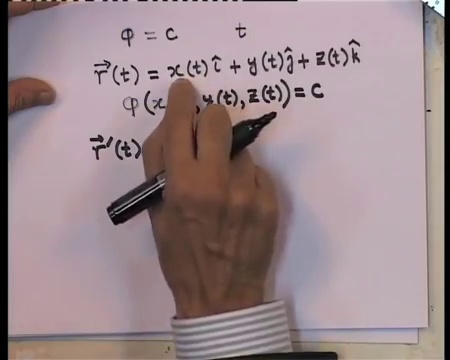 φ = c t
r⃗(t) = x(t) î + y(t) ĵ + z(t) k̂
φ(x , y(t), z(t)) = c
r⃗'(t)